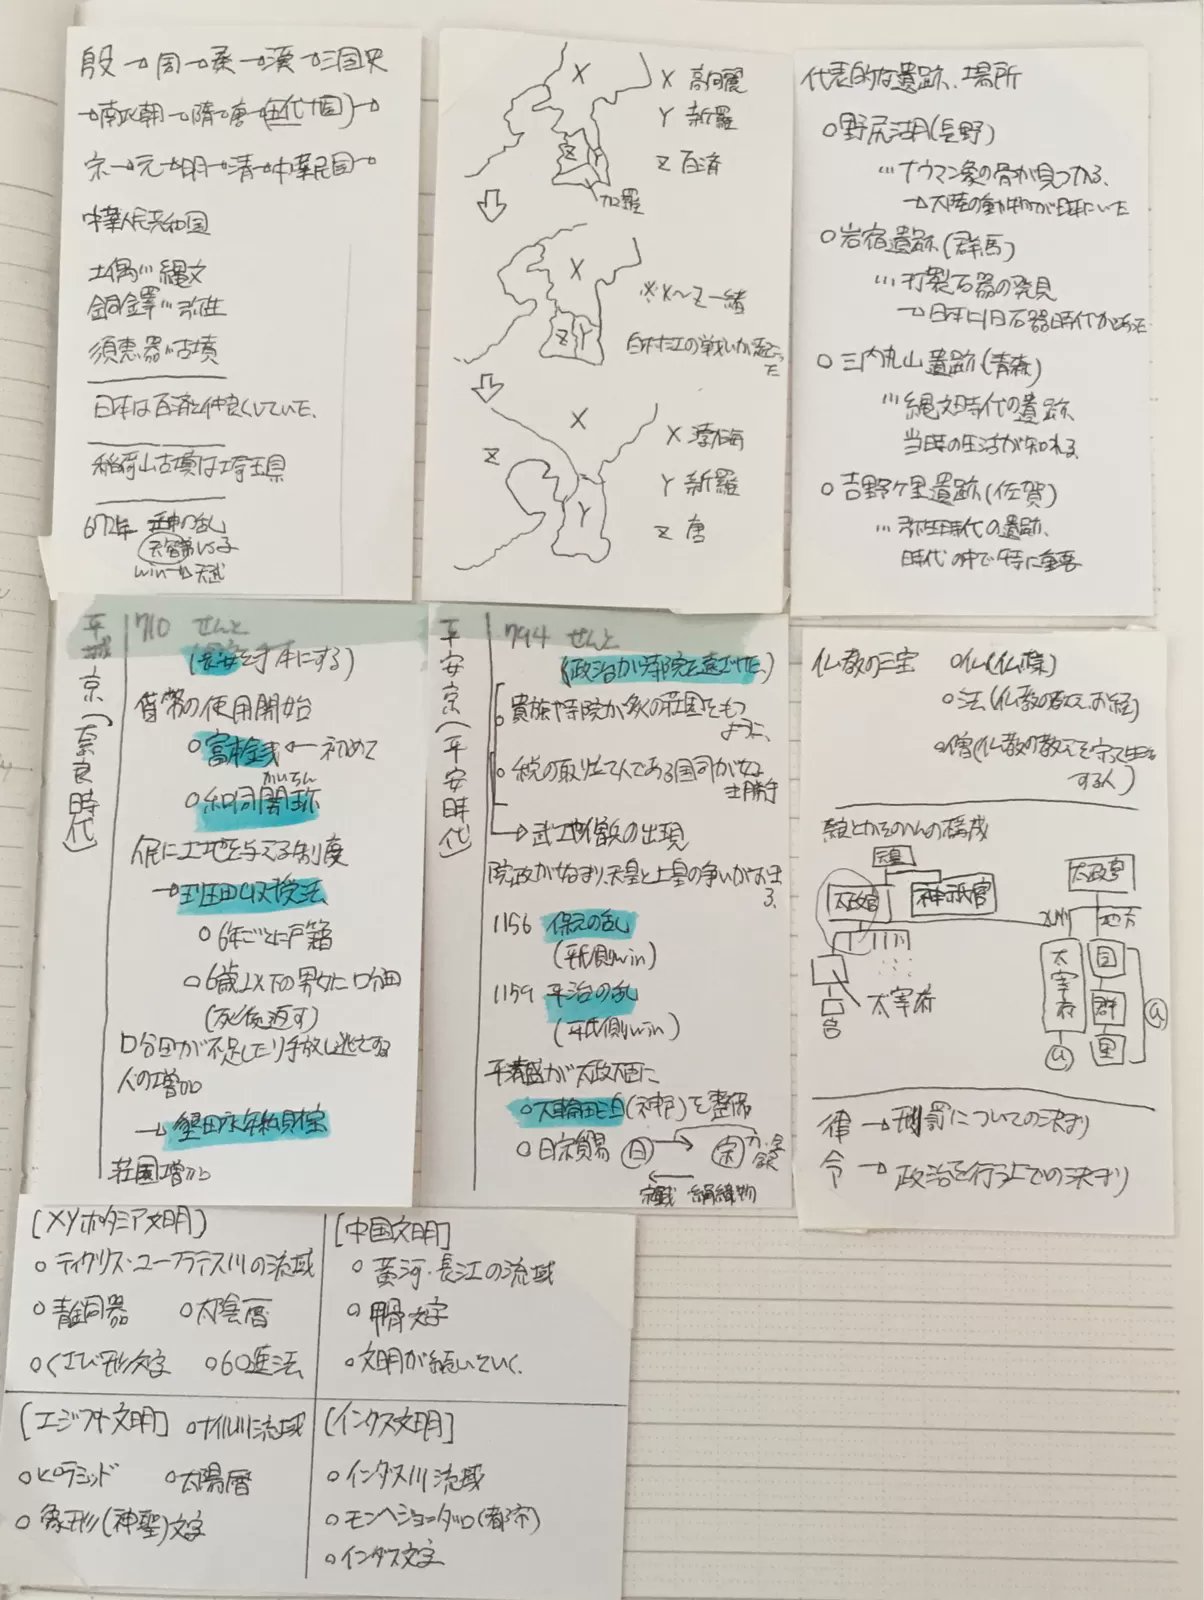 殷→周→秦→漢→三国史
→南北朝→隋→唐→(五代十国)→
宋→元→明→清→中華民国→
中華人民共和国
土偶…縄文
銅鐸…弥生
須恵器…古墳
日本は百済と仲良くしていた、
稲荷山古墳は埼玉県
672年 壬申の乱
天智弟VS子
win→天武
X
X 高句麗
Y 新羅
Z Y
Z 百済
加羅
X
※X〜Z一緒
Z Y
白村江の戦いが起こった
X
X 渤海
Z
Y 新羅
Y
Z 唐
代表的な遺跡、場所
○野尻湖(長野)
…ナウマン象の骨が見つかる、
→大陸の動物が日本にいた
○岩宿遺跡(群馬)
…打製石器の発見
→日本に旧石器時代があった
○三内丸山遺跡(青森)
…縄文時代の遺跡
当時の生活が知れる
○吉野ヶ里遺跡(佐賀)
…弥生時代の遺跡、
時代の中で特に重要
平城京(奈良時代)
710 せんと
(長安を手本にする)
貨幣の使用開始
○富本銭←初めて
かいちん
○和同開珎
人民に土地を与える制度
→班田収授法
○6年ごとに戸籍
○6歳以下の男女に口分田
(死後返す)
口分田が不足したり手放し逃亡する
人の増加
→墾田永年私財法
荘園増加
平安京(平安時代)
794 せんと
(政治から寺院を遠ざけた)
○貴族や寺院が多くの荘園をもつ
ように、
○税の取り立て人である国司が好き
勝手
→武士や僧兵の出現
院政が始まり、天皇と上皇の争いがおきる、
1156 保元の乱
(平氏側win)
1159 平治の乱
(平氏側win)
平清盛が太政大臣に
○大輪田泊(神戸)を整備
○日宋貿易 日 宋 刀・金銀
宋銭 絹織物
仏教の三宝 ○仏(仏様)
○法(仏教の教え、お経)
○僧(仏教の教えを守って生活
する人)
天皇
太政官 神祇官
太宰府
省
太政官
九州 地方
太宰府
国
群
里
律→刑罰についての決まり
令→政治を行う上での決まり
[メソポタミア文明]
○ティグリス・ユーフラテス川の流域
○青銅器 ○太陰暦
○くさび形文字 ○60進法
[中国文明]
○黄河・長江の流域
○甲骨文字
○文明が続いていく、
[エジプト文明] ○ナイル川流域
○ピラミッド ○太陽暦
○象形(神聖)文字
[インダス文明]
○インダス川流域
○モヘンジョーダロ(都市)
○インダス文字